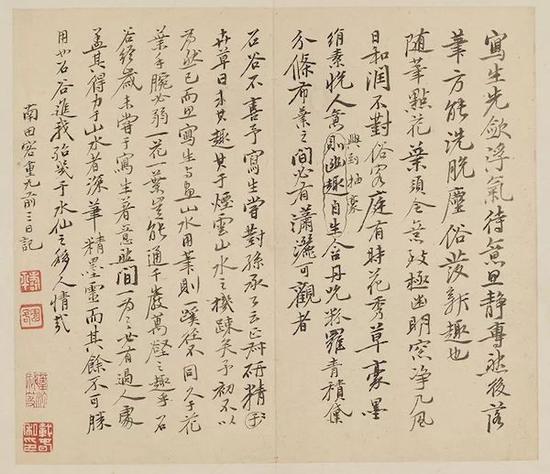 寫生先斂浮氣待意思靜專然後落
筆方能洗脫塵俗發新趣也
隨筆點花葉須令意致極幽明窗淨几風
日和潤不對俗客庭有時花秀草豪墨
絹素悅人意則幽趣自生合丹吮粉羅青積黛
興到抽豪
分條布葉之間必有瀟灑可觀者
石谷不喜予寫生嘗對孫承公云正叔研精于
卉草日求其趣其于煙雲山水之機疎矣予初不以
為然已而思寫生與畫山水用筆則一蹊徑不同久于花
葉手腕必弱一花一葉豈能通千巖萬壑之趣乎石
谷終歲未嘗于寫生著意然間一為之必有過人處
蓋其得力于山水者深筆精墨靈而其餘不可勝
用也石谷進我殆幾于水仙之移人情哉
南田客重九前三日記